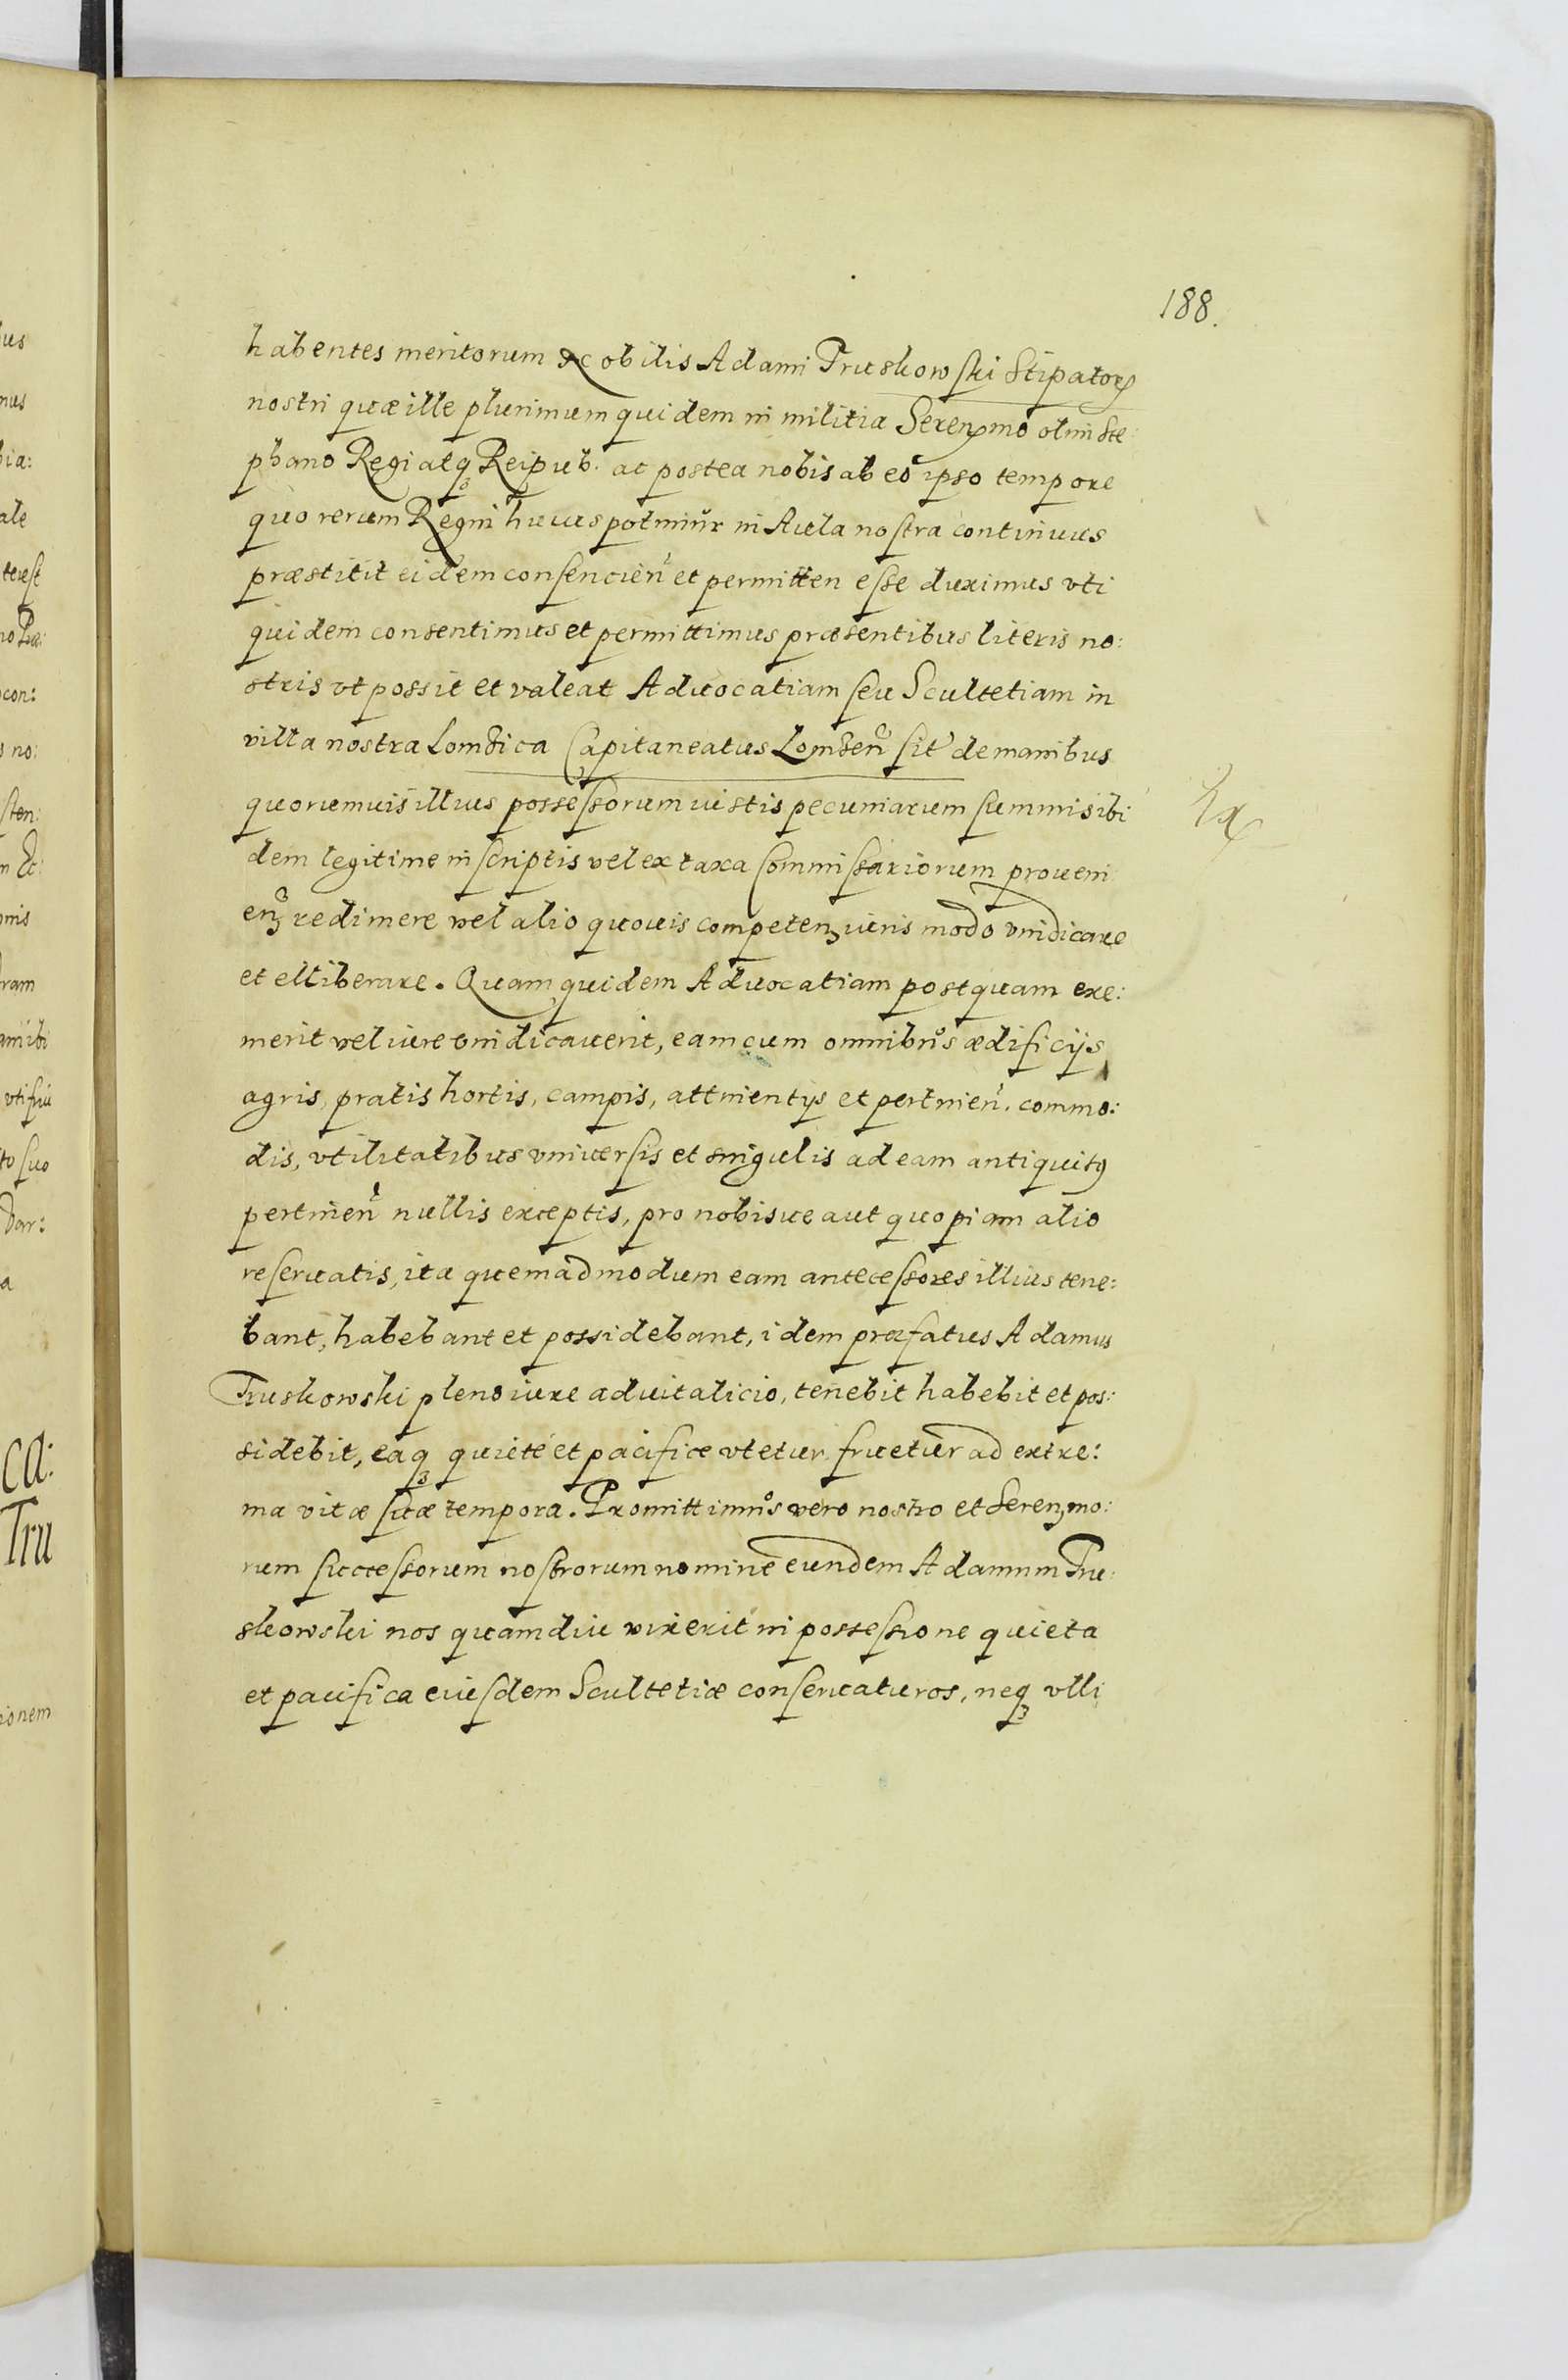 188.
habentes meritorum Nobilis Adami Truskowski Stipatory
nostri quæ ille plurimum quidem in militia Serenmo olim Ste:
phano Regi atq3 Reipub. ac postea nobis ab eo ipso tempore
quo rerum Regni huius potimur in Aula nostra continuus
præstitit eidem consencien et permitten esse duximus vti
quidem consentimus et permittimus præsentibus literis no:
stris vt possit et valeat Aduocatiam seu Scultetiam in
villa nostra Lomzica Capitaneatus Lomzen sit de manibus
quorumuis illius possessorum iustis pecuniarum summis ibi
dem legitime inscriptis vel ex taxa Commissariorum proueni
en3 redimere vel alio quouis competen3 iuris modo vindicare
et elliberare. Quam quidem Aduocatiam postquam exe:
merit vel iure vindicauerit, eam cum omnibus ædificijs,
agris, pratis hortis, campis, attinentijs et pertinen. commo:
dis, vtilitatibus vniuersis et singulis ad eam antiquitus
pertinen nullis exceptis, pro nobisue aut quopiam alio
reseruatis, ita quemadmodum eam antecessores illius tene:
bant, habebant et possidebant, idem præfatus Adamus
Truskowski pleno iure aduitalicio, tenebit habebit et pos:
sidebit, eaq3 quiete et pacifice vtetur fruetur ad extre:
ma vitæ suæ tempora. Promittimus vero nostro et Seren3mo:
rum successorum nostrorum nomine eundem Adamum Tru:
skowski nos quamdiu vixerit in possessione quieta
et pacifica eiusdem Scultetiæ conseruaturos, neq3 vlli